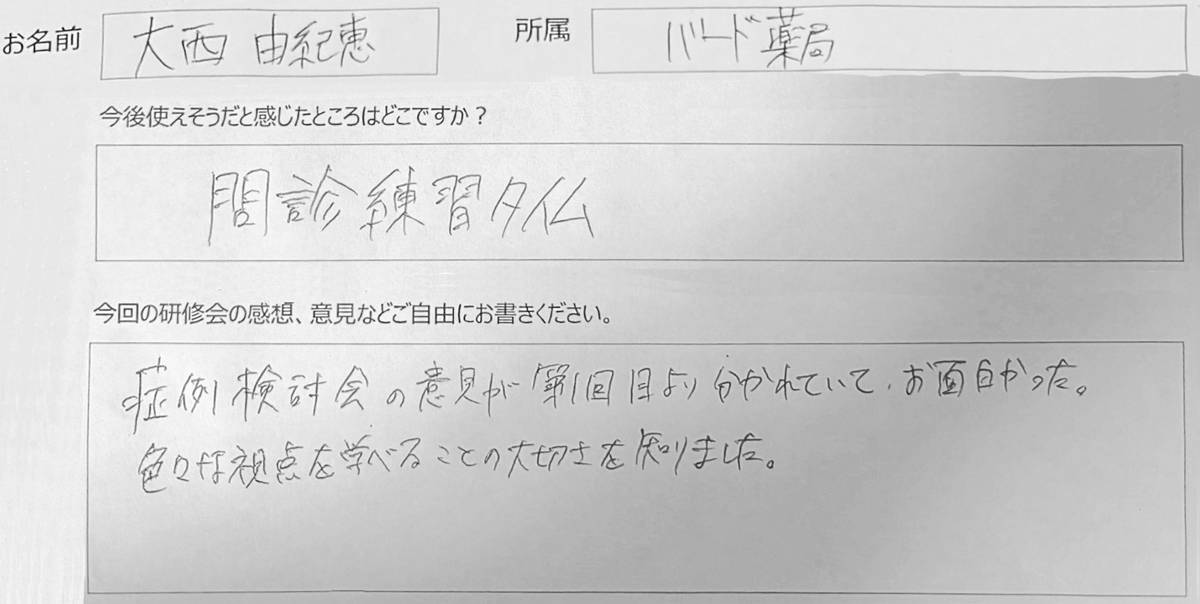 お名前 大西 由紀恵 所属 バード薬局
今後使えそうだと感じたところはどこですか？
問診練習タイム
今回の研修会の感想、意見などご自由にお書きください。
症例検討会の意見が第1回目より分かれていて、お面白かった。
色々な視点を学べることの大切さを知りました。